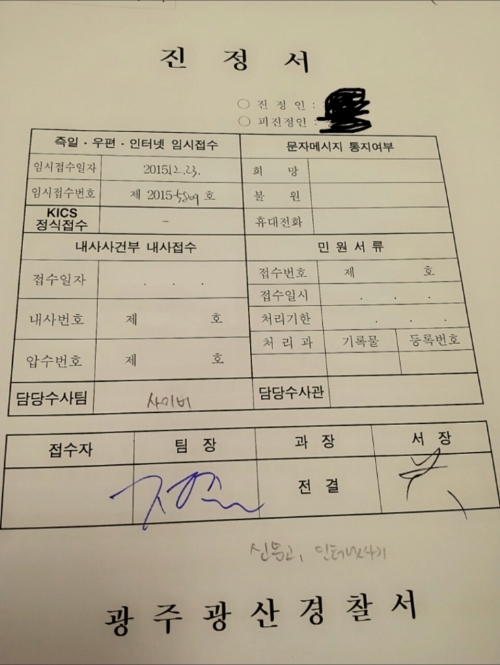 진 정 서
○ 진 정 인 :
○ 피진정인 :
즉일 · 우편 · 인터넷 임시접수 문자메시지 통지여부
임시접수일자 2015.12.23. 희 망
임시접수번호 제 2015- 호 불 원
KICS 정식접수 - 휴대전화
내사사건부 내사접수 민 원 서 류
접수일자 . . . 접수번호 제 호
접수일시 . . .
내사번호 제 호 처리기한 . . .
처 리 과 기록물 등록번호
압수번호 제 호
담당수사팀 사이버 담당수사관
접수자 팀 장 과 장 서 장
전 결
신문고, 인터넷사기
광주광산경찰서